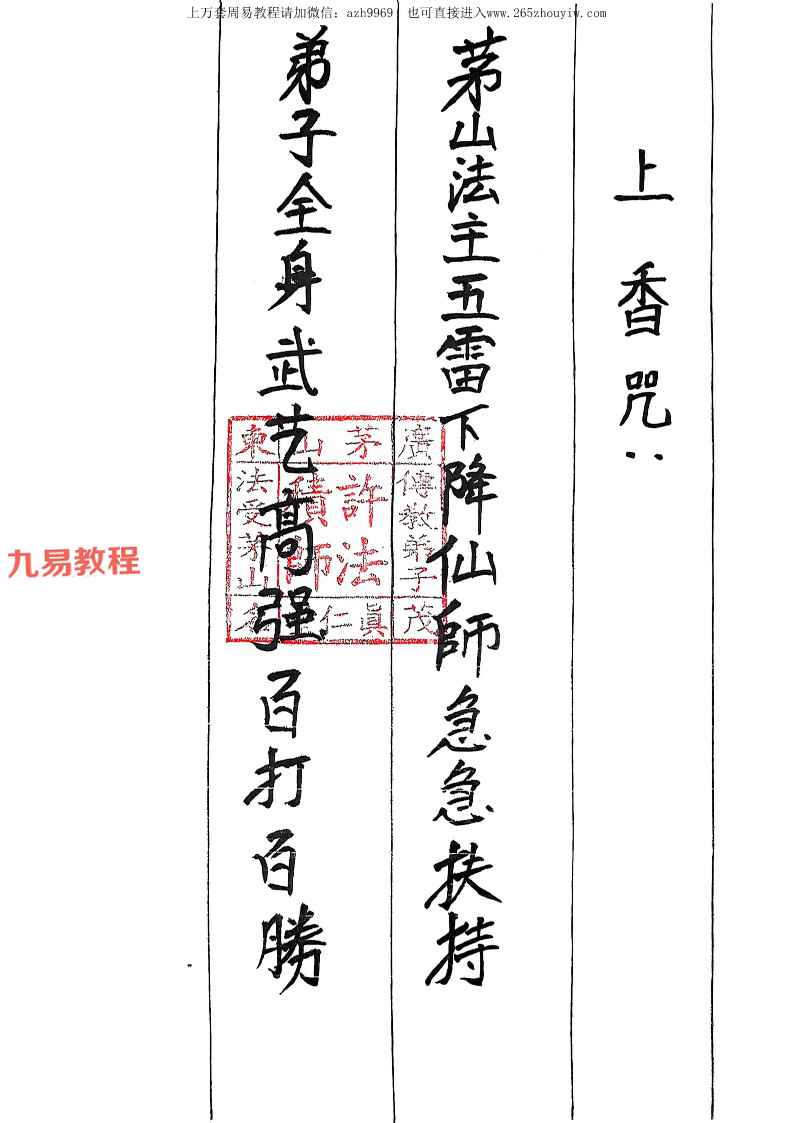 上万套周易教程请加微信：azh9969 也可直接进入www.265zhouyiw.com
上香咒：
茅山法主五雷下降仙師急急扶持
弟子全身武艺高强百打百勝
廣傳教弟子茂
茅山東
許法
積師
法受茅山
眞仁
九易教程